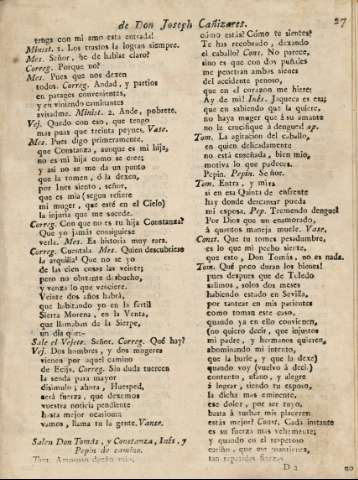 de Don Joseph Cañizares. 27
tenga con mi amo esta entrada!
Minist. 2. Los trastos la logran siempre.
Mes. Señor, he de hablar claro?
Correg. Porque no?
Mes. Pues que nos dexen
todos. Correg. Andad, y partios
en parages convenientes,
y en viniendo caminantes
avisadme. Minist. 2. Ande, pobrete.
Vej. Quedo con eso, que tengo
mas puas que treinta peynes. Vase.
Mes. Pues digo primeramente,
que Constanza, aunque es mi hija,
no es mi hija como se cree;
y asi no se me da un punto
que la tomen, ó la dexen,
por Ines siento, señor,
que es mia (segun refiere
mi muger, que esté en el Cielo)
la injuria que me sucede.
Correg. Con que no es tu hija Constanza?
Que yo jamás consiguiese
verla. Mes. Es historia muy rara.
Correg. Cuentala. Mes. Quien descubriese
la arquilla! Que no se yo
de las cien cosas las veinte;
pero no obstante desbucho,
y venza lo que venciere.
Veinte años habrá,
que habitando yo en la fertil
Sierra Morena, en la Venta,
que llamaban de la Sierpe,
un dia que::-
Sale el Vejete. Señor. Correg. Qué hay?
Vej. Dos hombres, y dos mugeres
vienen por aquel camino
de Ecija. Correg. Sin duda tuercen
la senda para mayor
disimulo; ahora, Huesped,
será fuerza, que dexemos
vuestra noticia pendiente
hasta mejor ocasion:
vamos, llama tu la gente. Vanse.
Salen Don Tomás, y Constanza, Inés, y
Pepin de camino.
cómo estás? Cómo te sientes?
Te has recobrado, dexando
el caballo? Const. No parece,
sino es que con dos puñales
me penetran ambas sienes
del accidente penoso,
que en el corazon me hiere:
Ay de mi! Inés. Jaqueca es esa;
que en sabiendo que la quiere,
no haya muger que á su amante
no le crucifique á dengues! ap.
Tom. La agitacion del caballo,
en quien delicadamente
no está enseñada, bien mio,
motiva lo que padeces.
Pepin. Pepin. Señor.
Tom. Entra, y mira
si en esa Quinta de enfrente
hay donde descansar pueda
mi esposa. Pep. Tremendo dengue!
Por Dios que un enamorado,
á quantos maneja muele. Vase.
Const. Que tu tomes pesadumbre,
es lo que mi pecho siente,
que esto, Don Tomás, no es nada.
Tom. Qué poco duran los bienes!
pues despues que de Toledo
salimos, solos dos meses
habiendo estado en Sevilla,
por tantear en mis parientes
como toman este caso,
quando ya en ello convienen,
(no quiero decir, que injustos
mi padre, y hermanos quieren,
abominando mi intento,
que la burle, y que la dexe)
quando voy (vuelvo á deci.)
contento, ufano, y alegre
á lograr, siendo tu esposo,
la dicha mas eminente,
ese dolor, por ser tuyo,
basta á turbar mis placeres
estás mejor? Const. Cada instante
es su fuerza mas vehemente;
y quando en el respetoso
cariño, que me mantienes,
tan repetidas fuerzas
D 2
no